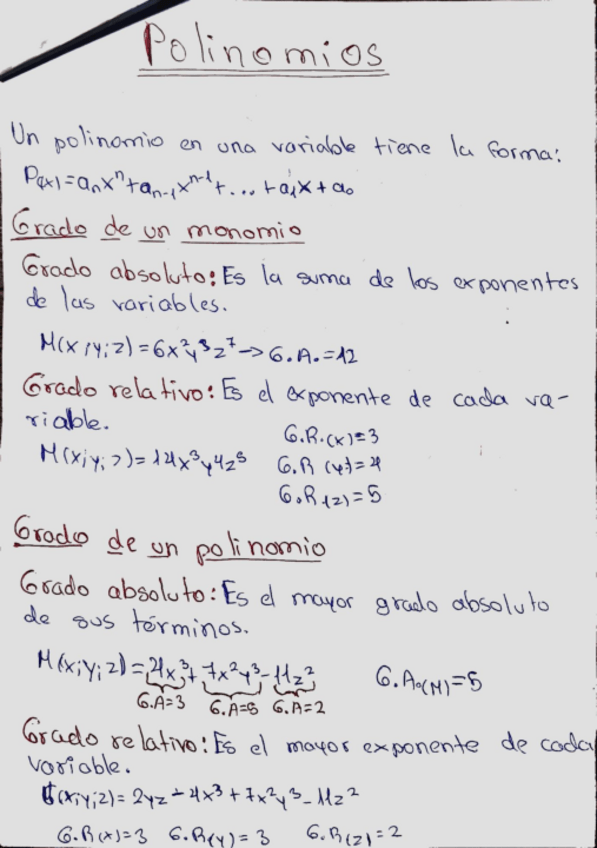 Polinomios
Un polinomio en una variable tiene la forma:
P(x)=aₙxⁿ+aₙ₋₁xⁿ⁻¹+...+a₁x+a₀
Grado de un monomio
Grado absoluto: Es la suma de los exponentes
de las variables.
M(x;y;z)=6x²y³z⁷→G.A.=12
Grado relativo: Es el exponente de cada va-
riable.
G.R.(x)=3
M(x;y;z)=14x³y⁴z⁵ G.R(y)=4
G.R(z)=5
Grado de un polinomio
Grado absoluto: Es el mayor grado absoluto
de sus términos.
M(x;y;z)=4x³+7x²y³-11z² G.A.(M)=5
G.A=3 G.A=5 G.A=2
Grado relativo: Es el mayor exponente de cada
variable.
(x;y;z)=2yz-4x³+7x²y³-11z²
G.R(x)=3 G.R(y)=3 G.R(z)=2